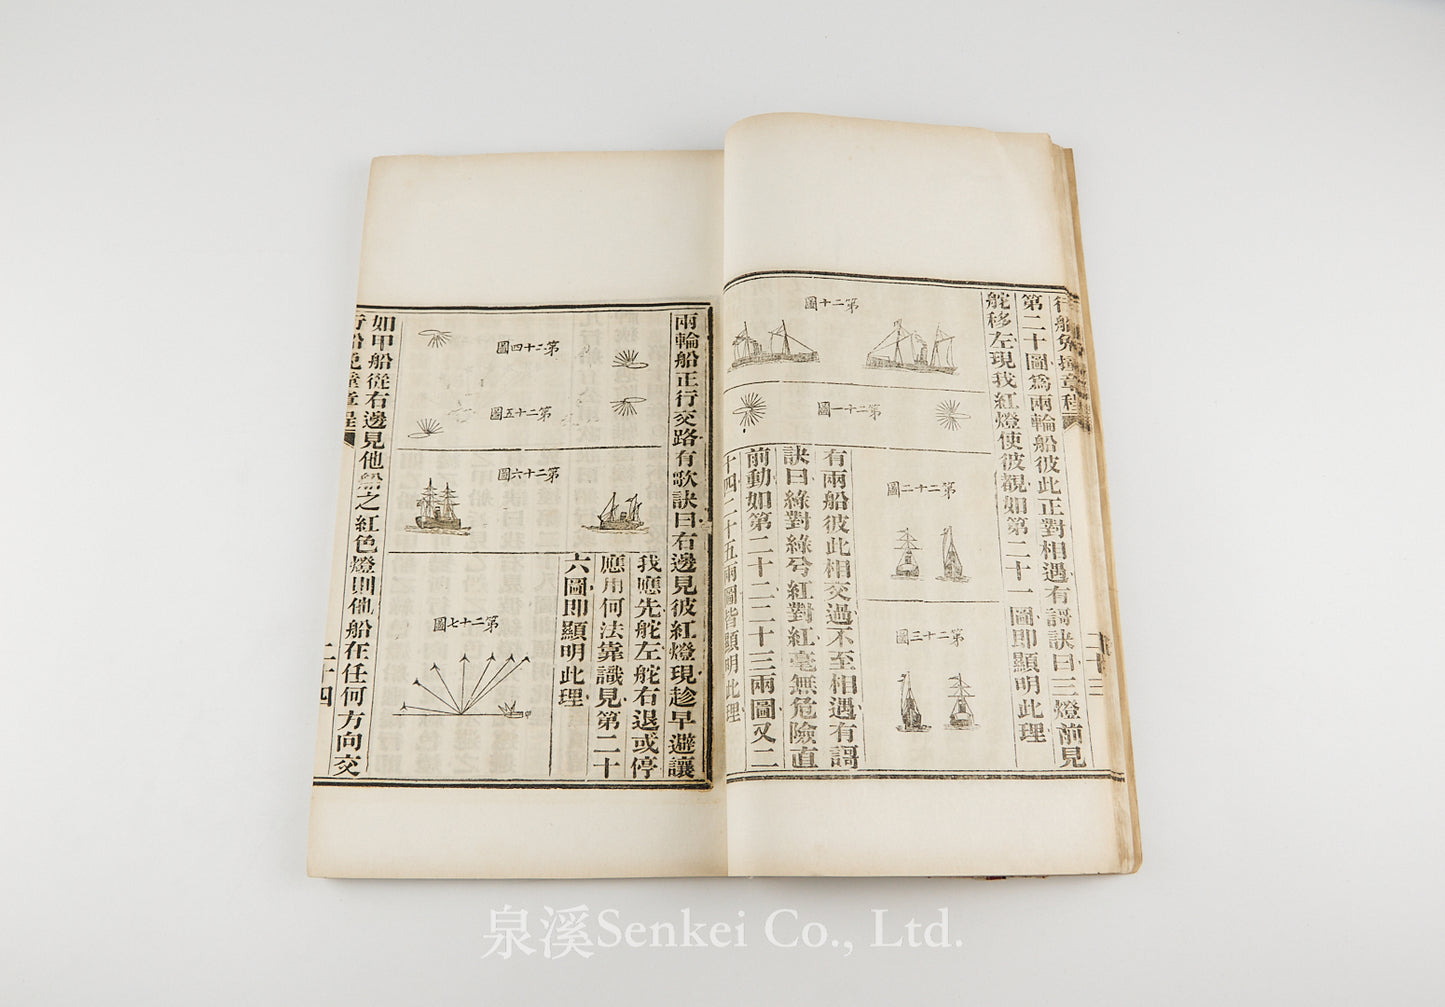 行船免撞章程
二十三
第二十圖爲兩輪船彼此正對相遇有謌訣曰三燈前見
舵移左現我紅燈使彼覩如第二十一圖即顯明此理
第二十圖
第二十一圖
第二十二圖
第二十三圖
有兩船彼此相交過不至相遇有謌
訣曰綠對綠兮紅對紅毫無危險直
前動如第二十二二十三兩圖又二
十四二十五兩圖皆顯明此理
兩輪船正行交路有歌訣曰右邊見彼紅燈現趁早避讓
第二十四圖
第二十五圖
第二十六圖
我應先舵左舵右退或停
應用何法靠識見第二十
六圖即顯明此理
第二十七圖
如甲船從右邊見他船之紅色燈則他船在任何方向交
行船免撞章程
二十四
泉溪Senkei Co., Ltd.